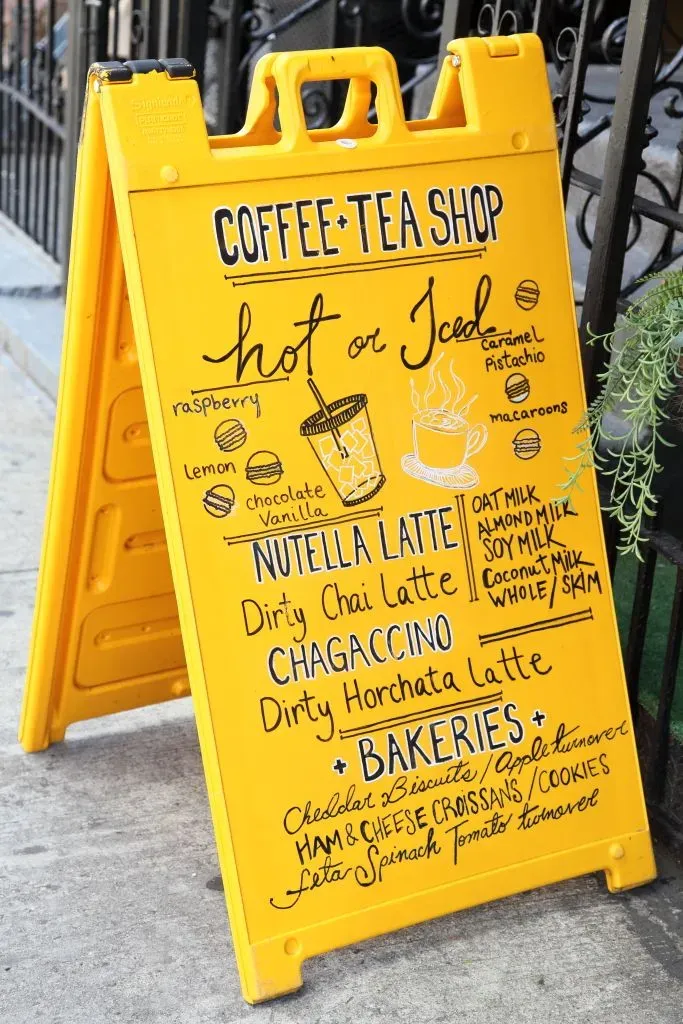 Signicade
COFFEE + TEA SHOP
hot or Iced
caramel
Pistachio
macaroons
raspberry
Lemon
chocolate
Vanilla
NUTELLA LATTE
Dirty Chai Latte
CHAGACCINO
Dirty Horchata Latte
OAT MILK
ALMOND MILK
SOY MILK
Coconut MILK
WHOLE/SKIM
+ BAKERIES +
Cheddar Biscuits / Apple turnover
HAM & CHEESE CROISSANS / COOKIES
feta Spinach Tomato turnover